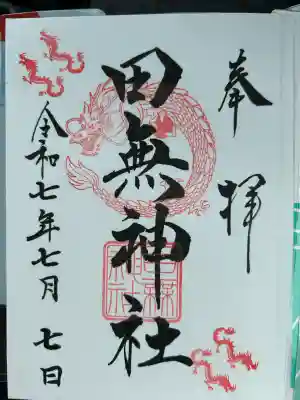 奉拝
田無神社
令和七年七月七日